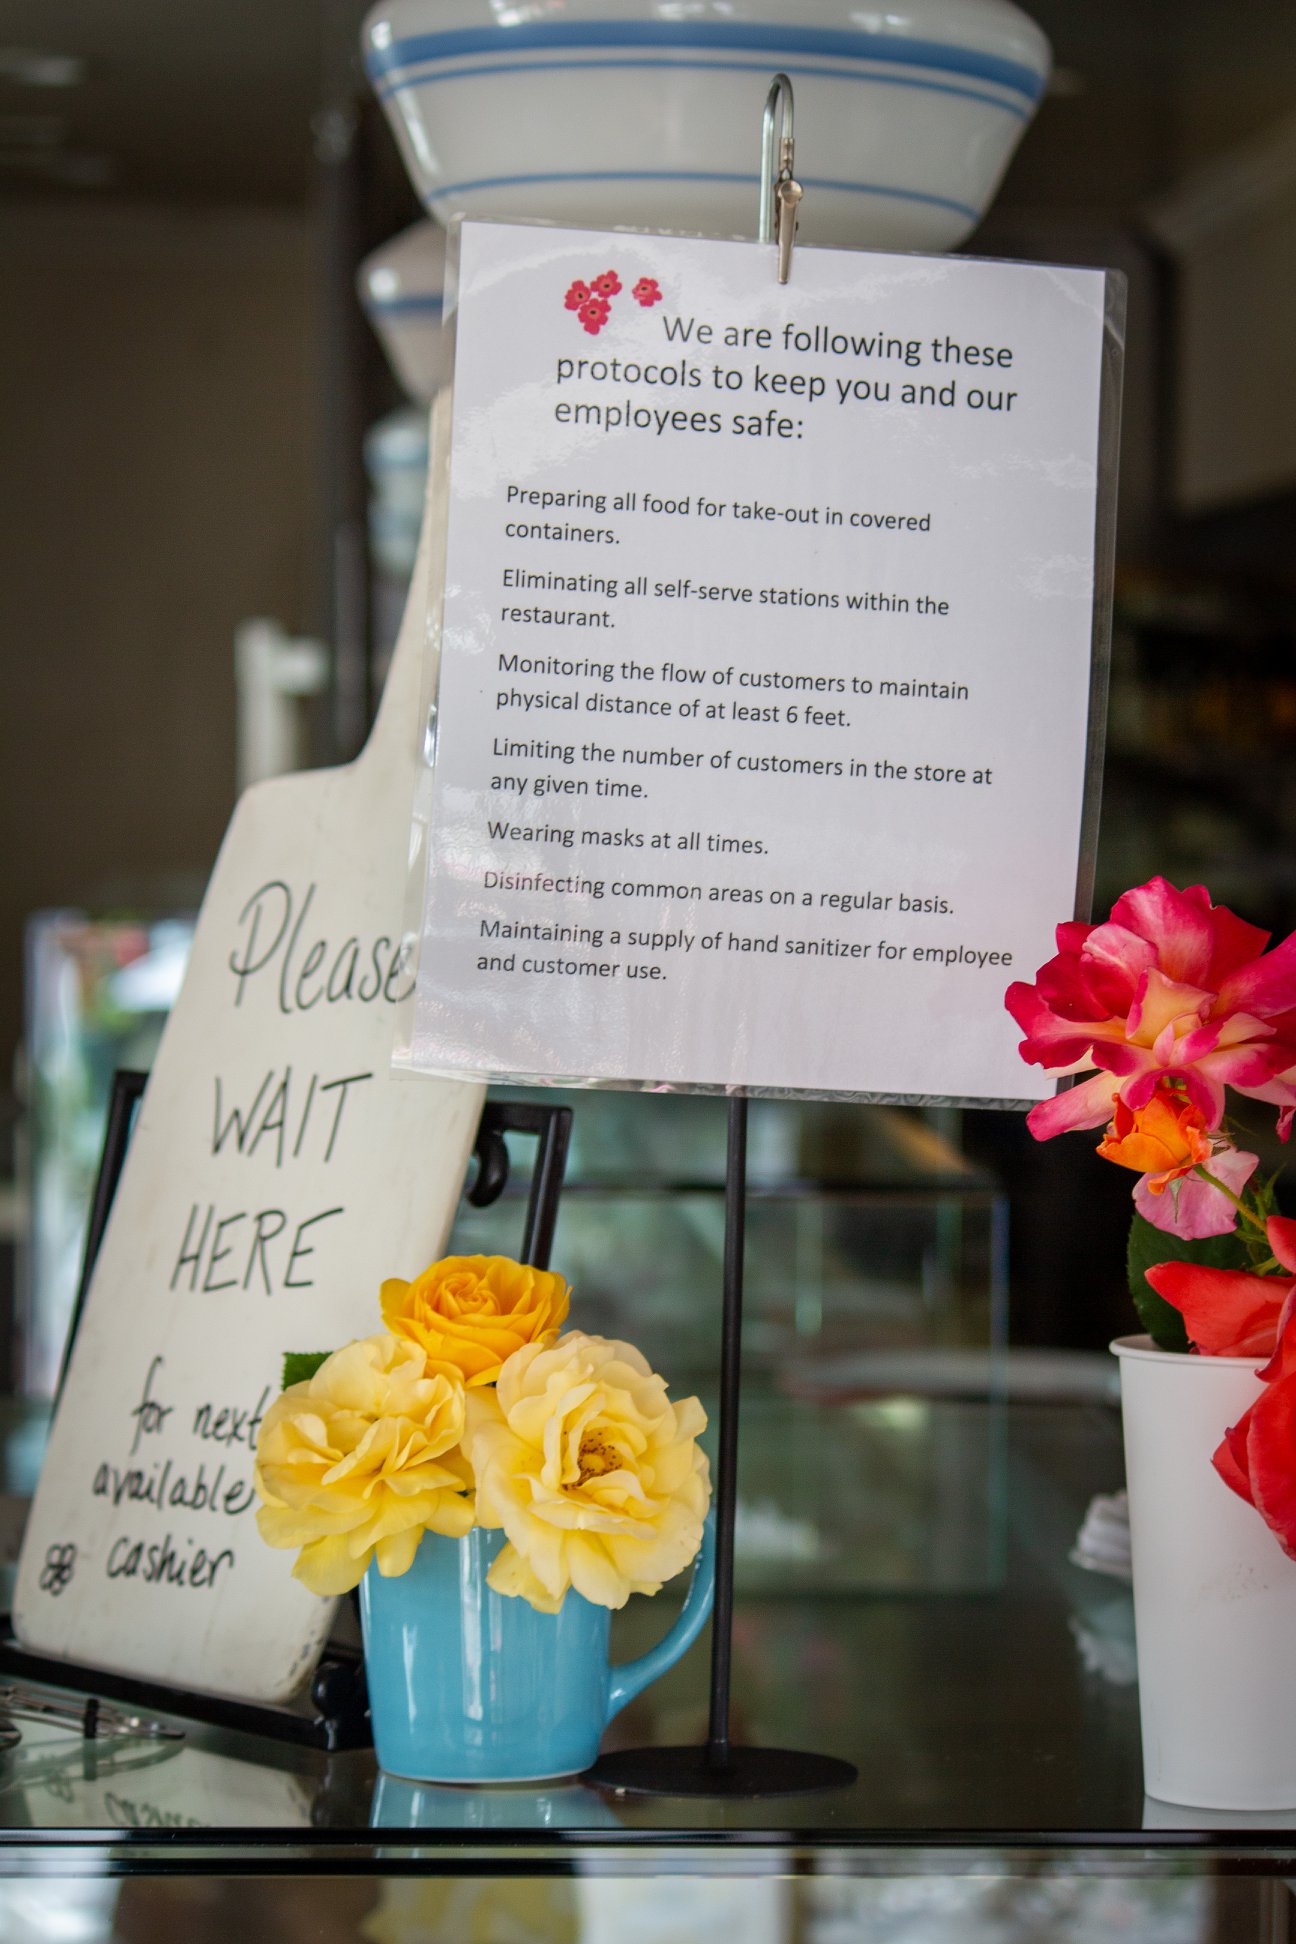 We are following these
protocols to keep you and our
employees safe:
Preparing all food for take-out in covered
containers.
Eliminating all self-serve stations within the
restaurant.
Monitoring the flow of customers to maintain
physical distance of at least 6 feet.
Limiting the number of customers in the store at
any given time.
Wearing masks at all times.
Disinfecting common areas on a regular basis.
Maintaining a supply of hand sanitizer for employee
and customer use.
Please
WAIT
HERE
for next
available
cashier